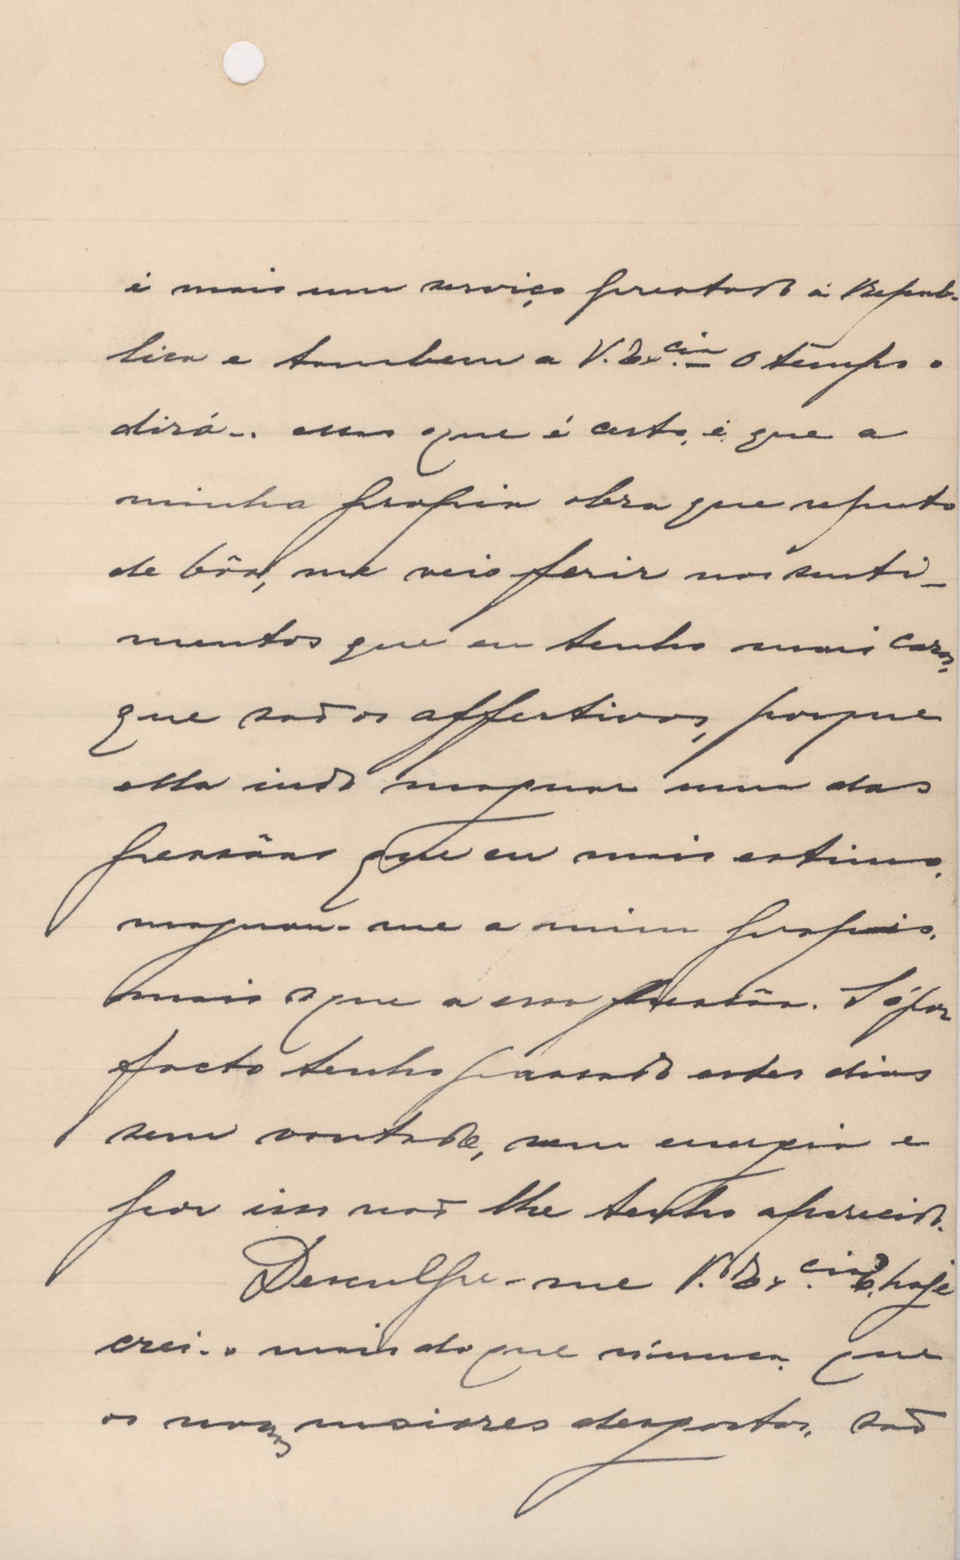 é mais um serviço prestado á Repub-
lica e tambem a V. Ex.cia O tempo o
dirá-. mas o que é certo, é que a
minha propia obra que reputo
de bôa, me veio ferir nos senti-
mentos que eu tenho mais caros,
que são os affectivos, porque
ella indo maguar uma das
pessôas que eu mais estimo,
maguou-me a mim propio,
mais que a essa pessôa. Só por
facto tenho passado estes dias
sem vontade, sem energia e
por isso não lhe tenho aparecido.
Desculpe-me V. Ex.cia, hoje
crei-o mais do que nunca, que
os nossos maiores desgostos, são